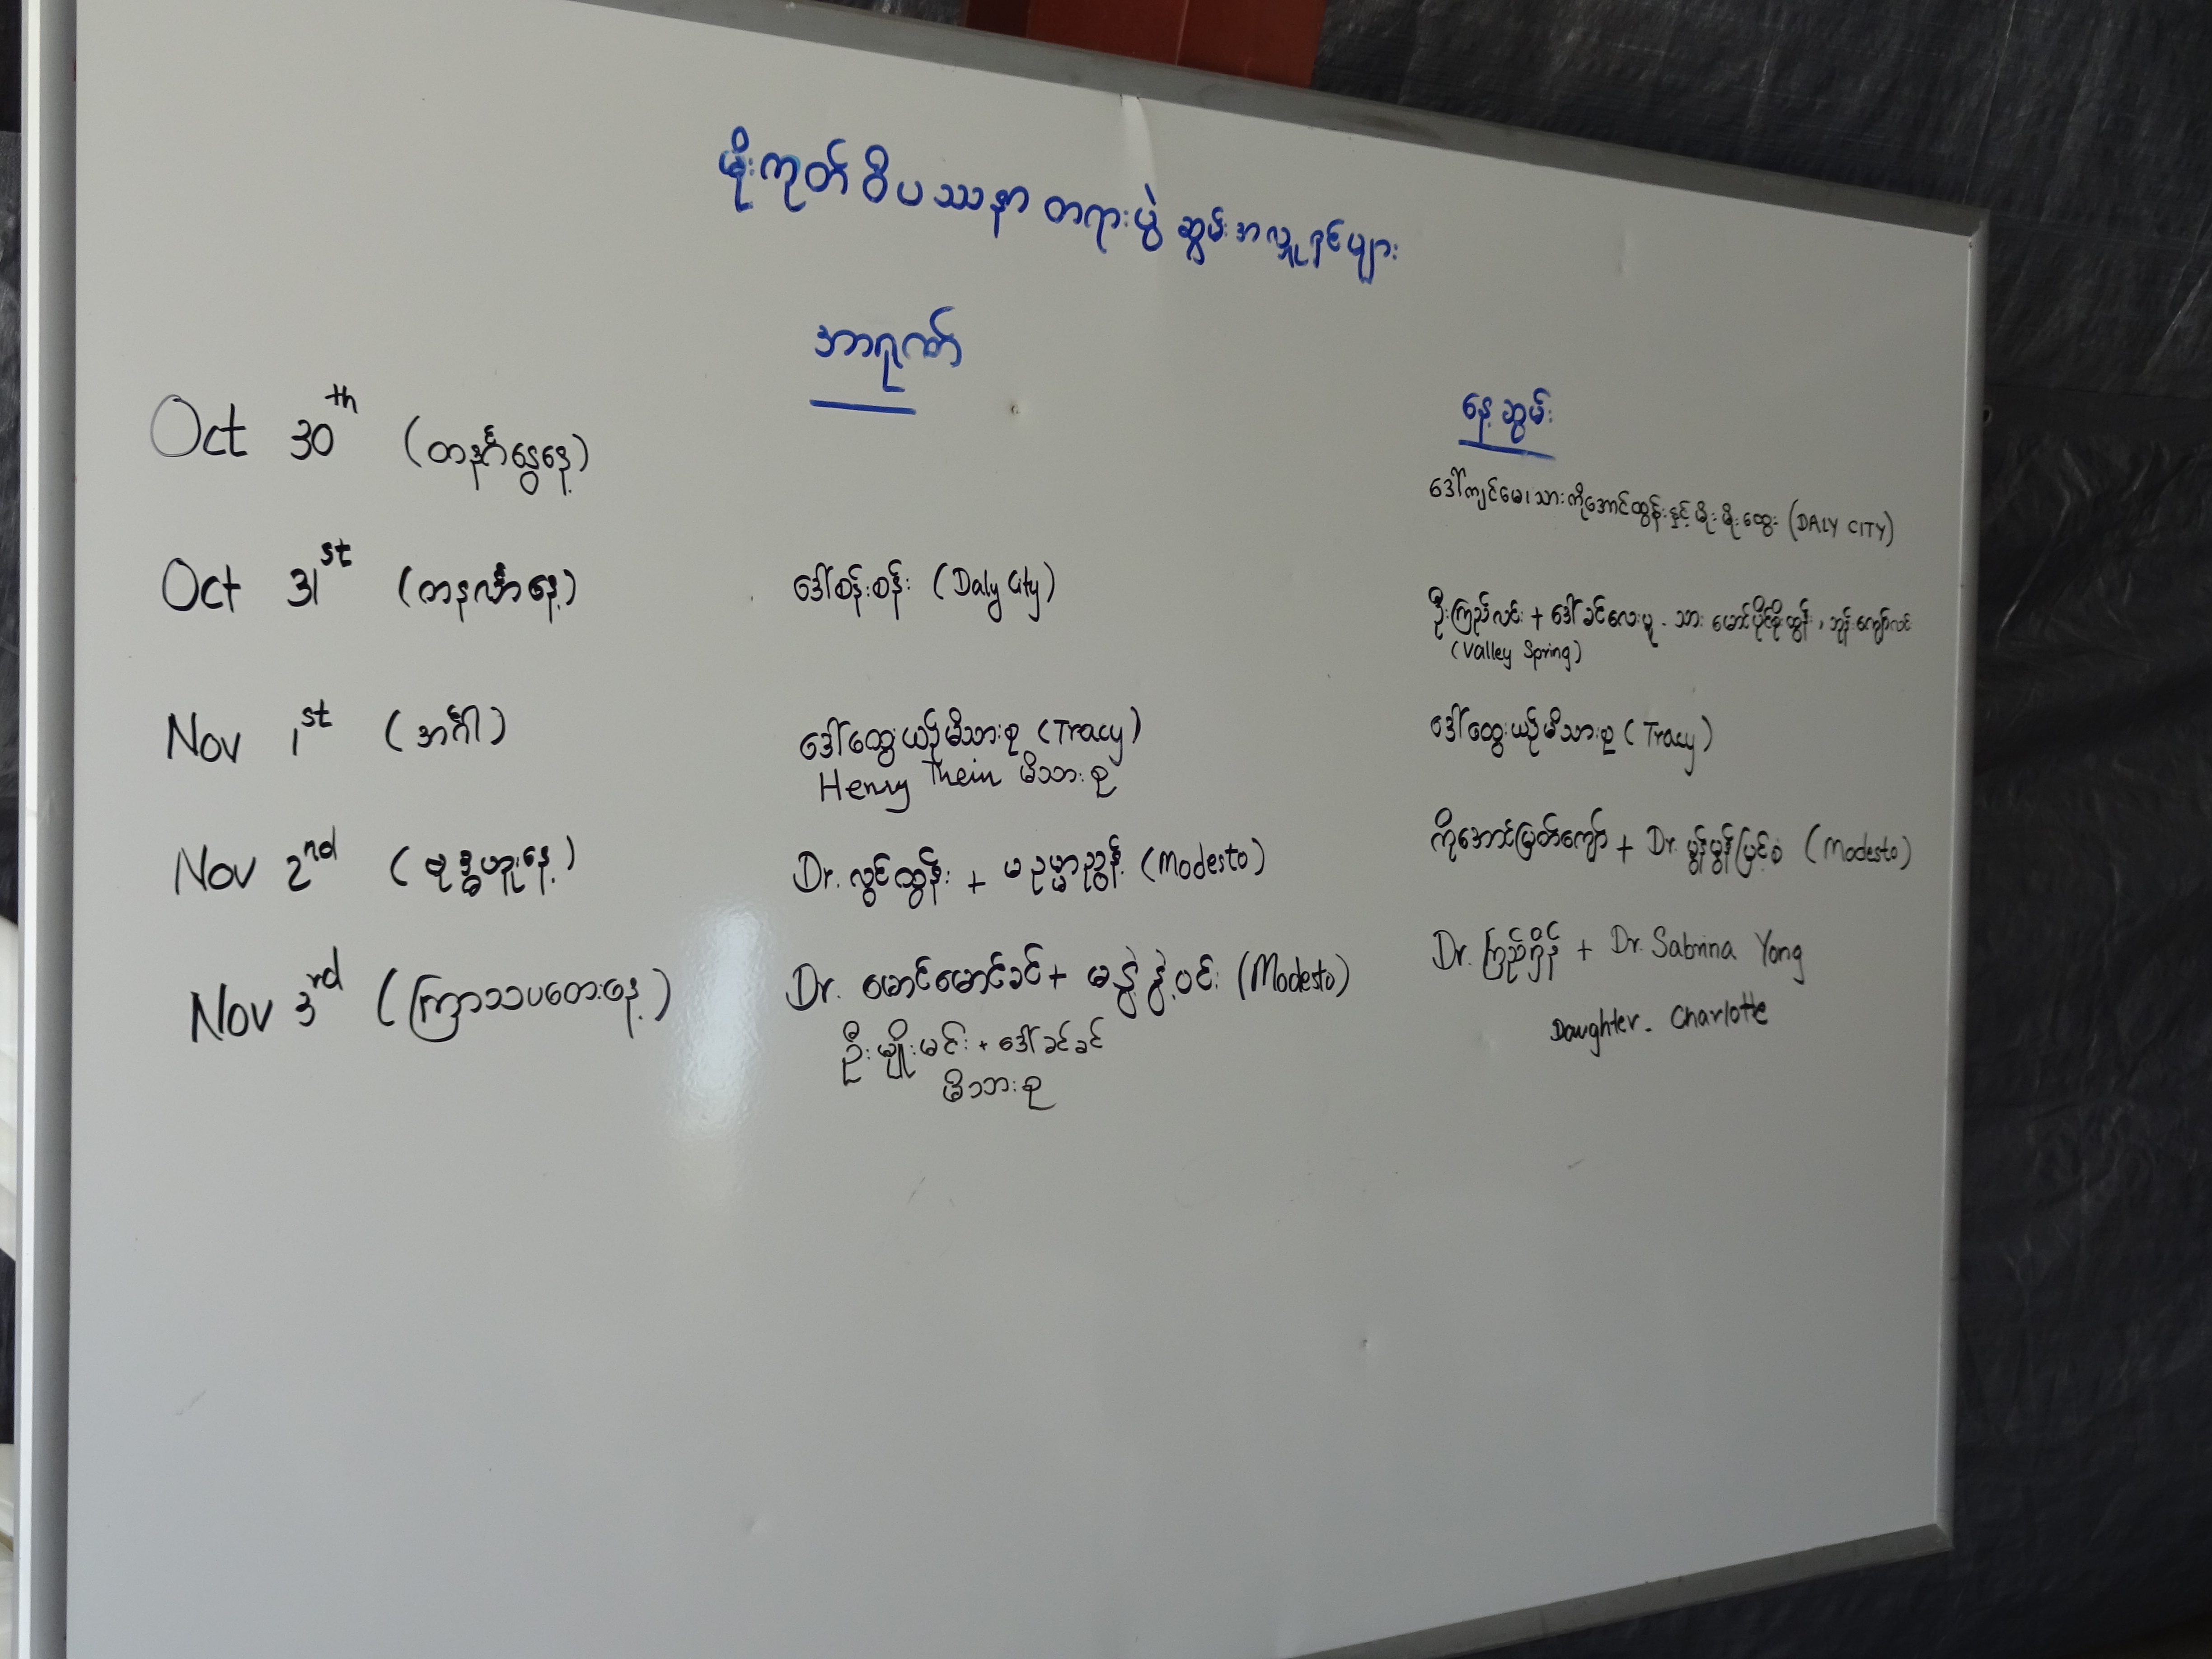 မိုးကုတ် ဝိပဿနာ တရားပွဲ ဆွမ်းအလှူရှင်များ
အာရုဏ်
နေ့ဆွမ်း
Oct 30th (တနင်္ဂနွေနေ့)
ဒေါ်ကျင်မေ၊ သား ကိုအောင်ထွန်းနှင့် မိုးမိုးထွေး (DALY CITY)
Oct 31st (တနင်္လာနေ့)
ဒေါ်စန်းစန်း (Daly City)
ဦးကြည်လင်း + ဒေါ်ခင်လေးမူ - သား မောင်ပိုင်စိုးထွန်း, ဘုန်းကျော်လင်း
(Valley Spring)
Nov 1st (အင်္ဂါ)
ဒေါ်ထွေးယဉ်မိသားစု (Tracy)
Henry Thein မိသားစု
ဒေါ်ထွေးယဉ်မိသားစု (Tracy)
Nov 2nd (ဗုဒ္ဓဟူးနေ့)
Dr. လွင်ထွန်း + မဥမ္မာညွန့် (Modesto)
ကိုအောင်မြတ်ကျော် + Dr. မွန်မွန်မြင့်စံ (Modesto)
Nov 3rd (ကြာသပတေးနေ့)
Dr. မောင်မောင်ခင် + မနွဲ့နွဲ့ဝင်း (Modesto)
ဦးမျိုးမင်း + ဒေါ်ခင်ခင်
မိသားစု
Dr. ကြည်ရှိန် + Dr. Sabrina Yong
Daughter - Charlotte